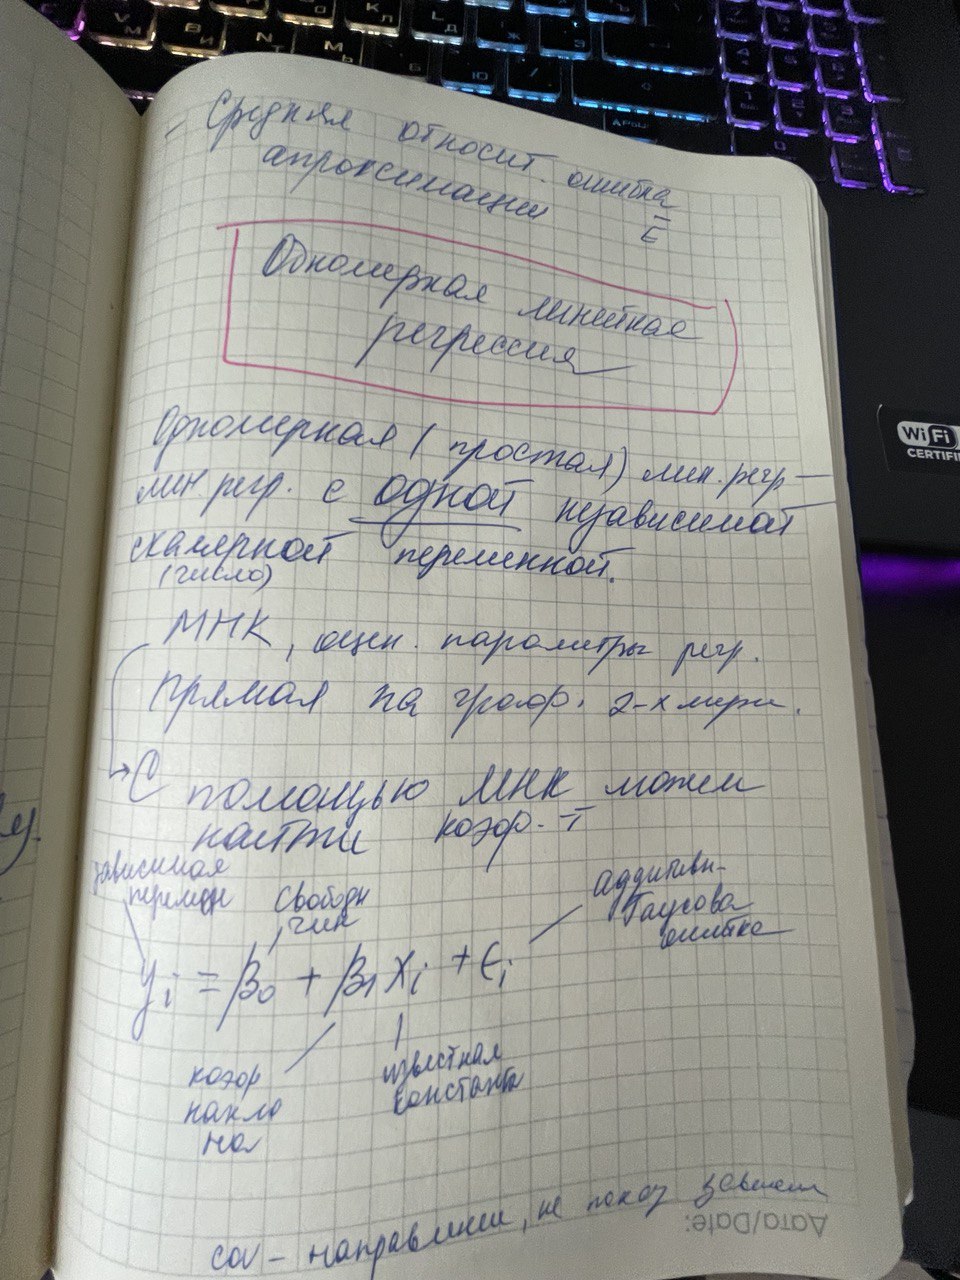 - Средняя относит. ошибка
апроксимации
Е
Одномерная линейная
регрессия
Одномерная (простая) лин. регр –
лин. регр. с одной независимой
скалярной переменной.
(число)
МНК, оцен. параметры регр.
Прямая на граф. 2-х мерн.
С помощью МНК можем
найти коэф. –
зависимая
перемен
свободн
член
аддитивн-
Гаусова
ошибка
yi = β0 + β1 xi + Ei
коэф
накло
на
известная
константа
cov – направлении, не показ зависим
Дата/Date:
WiFi
CERTIFI